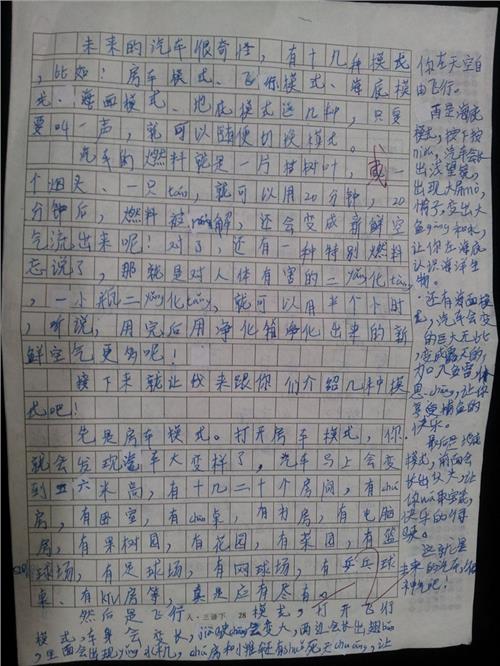 未来的汽车很奇怪，有十几种模式
，比如：房车模式、飞行模式、海底模
式、海面模式、地底模式这几种，只要
要叫一声，就可以随便切换模式。
汽车的燃料就是一片树叶，或一
个烟头、一只táng，就可以用20分钟，20
分钟后，燃料被róng解，还会变成新鲜空
气流出来呢！对了，还有一种特别燃料
忘说了，那就是对人体有害的二yǎng化tàn，
一小瓶二yǎng化tàn，就可以用半个小时
，听说，用完后用净化箱净化出来的新
鲜空气更多呢！
接下来就让我来跟你们介绍几种模
式吧！
先是房车模式。打开房车模式，你
就会发现汽车大变样了，汽车马上会变
到五六米高，有十几二十个房间，有chú
房，有卧室，有cān桌，有书房，有电脑
房，有果树园，有花园，有菜园，有篮
球场，有足球场，有网球场，有乒乓球
桌、有KTV房等，真是应有尽有。
人·三语下 28
然后是飞行模式，打开飞行
模式，车身会变长，会变大，两边会长出翅bǎng
，里面会出现
你在天空自
由飞行。
再是海底
模式，按下按
niǔ，汽车会长
出望望镜，
出现大屏mò，
让你在海底
认识海洋生
物。
还有海面模
式，汽车会变
的巨大无比，
，让你
享受捕鱼的
快乐。
最后是地底
模式，前面会
长出
，让
你wā取宝藏，
快乐的
这就是
未来的汽车，很
神奇吧！